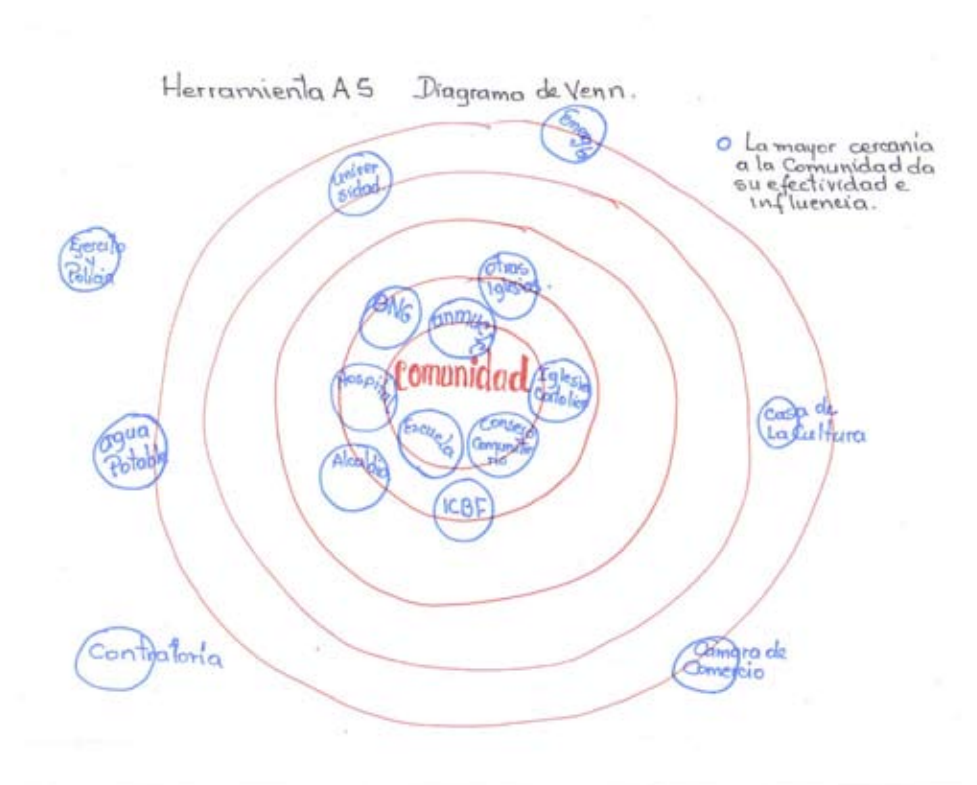 Herramienta A5 Diagrama de Venn.
La mayor cercania
a la Comunidad da
su efectividad e
influencia.
Univer
sidad
Ejercito
y
Policia
Otras
Iglesias.
ONG
comunidad
Hospital
Iglesia
Catolica
Escuela
Consejo
Comunita
rio
Casa de
La Cultura
agua
Potable
Alcaldia
ICBF
Contraloría
Camara de
Comercio